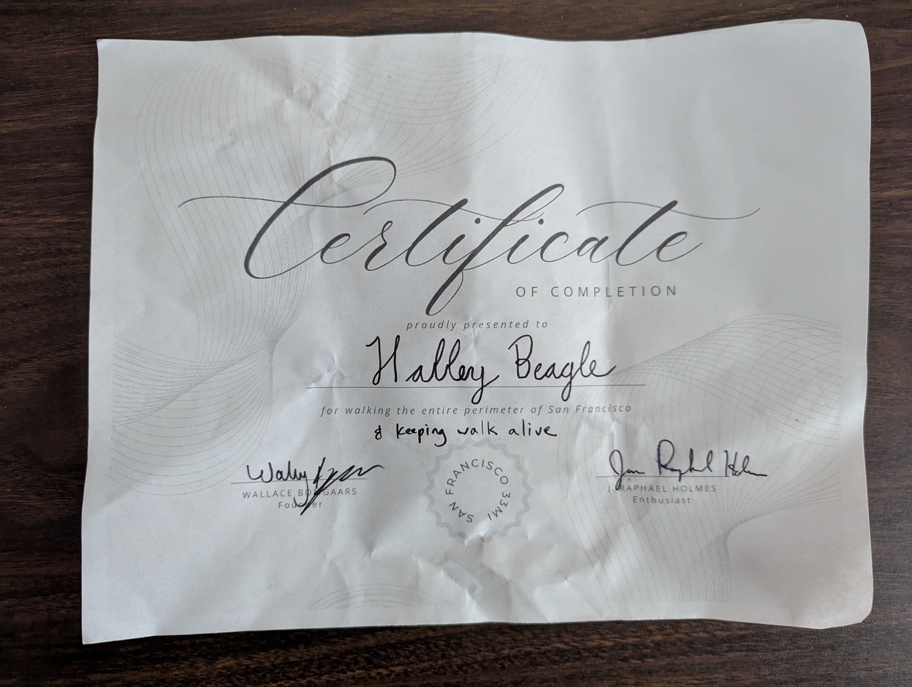 Certificate
OF COMPLETION
proudly presented to
Halley Beagle
for walking the entire perimeter of San Francisco
& keeping walk alive
WALLACE
Founder
SAN FRANCISCO 33MI
J. RAPHAEL HOLMES
Enthusiast